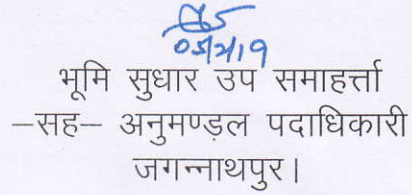 05/2/19
भूमि सुधार उप समाहर्त्ता
–सह– अनुमण्ड़ल पदाधिकारी
जगन्नाथपुर।